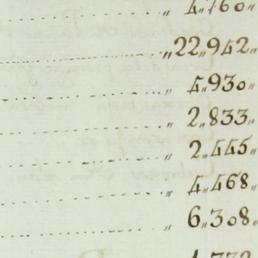 „ 4„760„
„22„942„
„ 4„930„
„ 2„833„
„ 2„445„
„ 4„468„
„ 6„308„